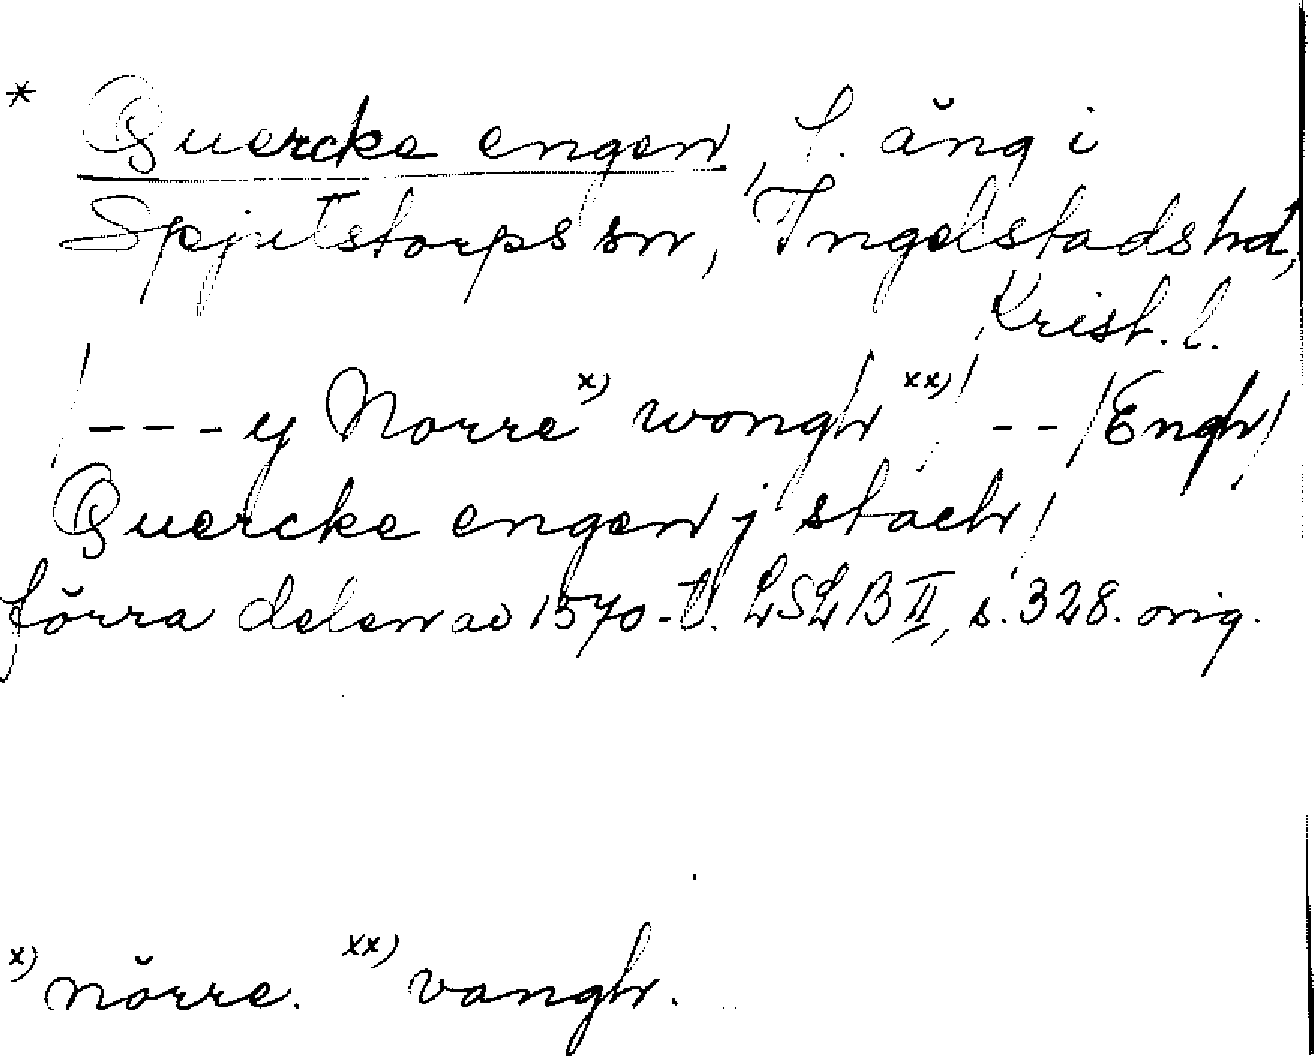 * Quercke engen, f. äng i
Spjutstorps sn, Ingelstads hd,
Krist. l.
/ - - - y Norre x) wongh xx) / - - / Engh /
Quercke engen j stach /
förra delen av 1570-t. LSLB II, s. 328. orig.
x) nörre. xx) vangh.